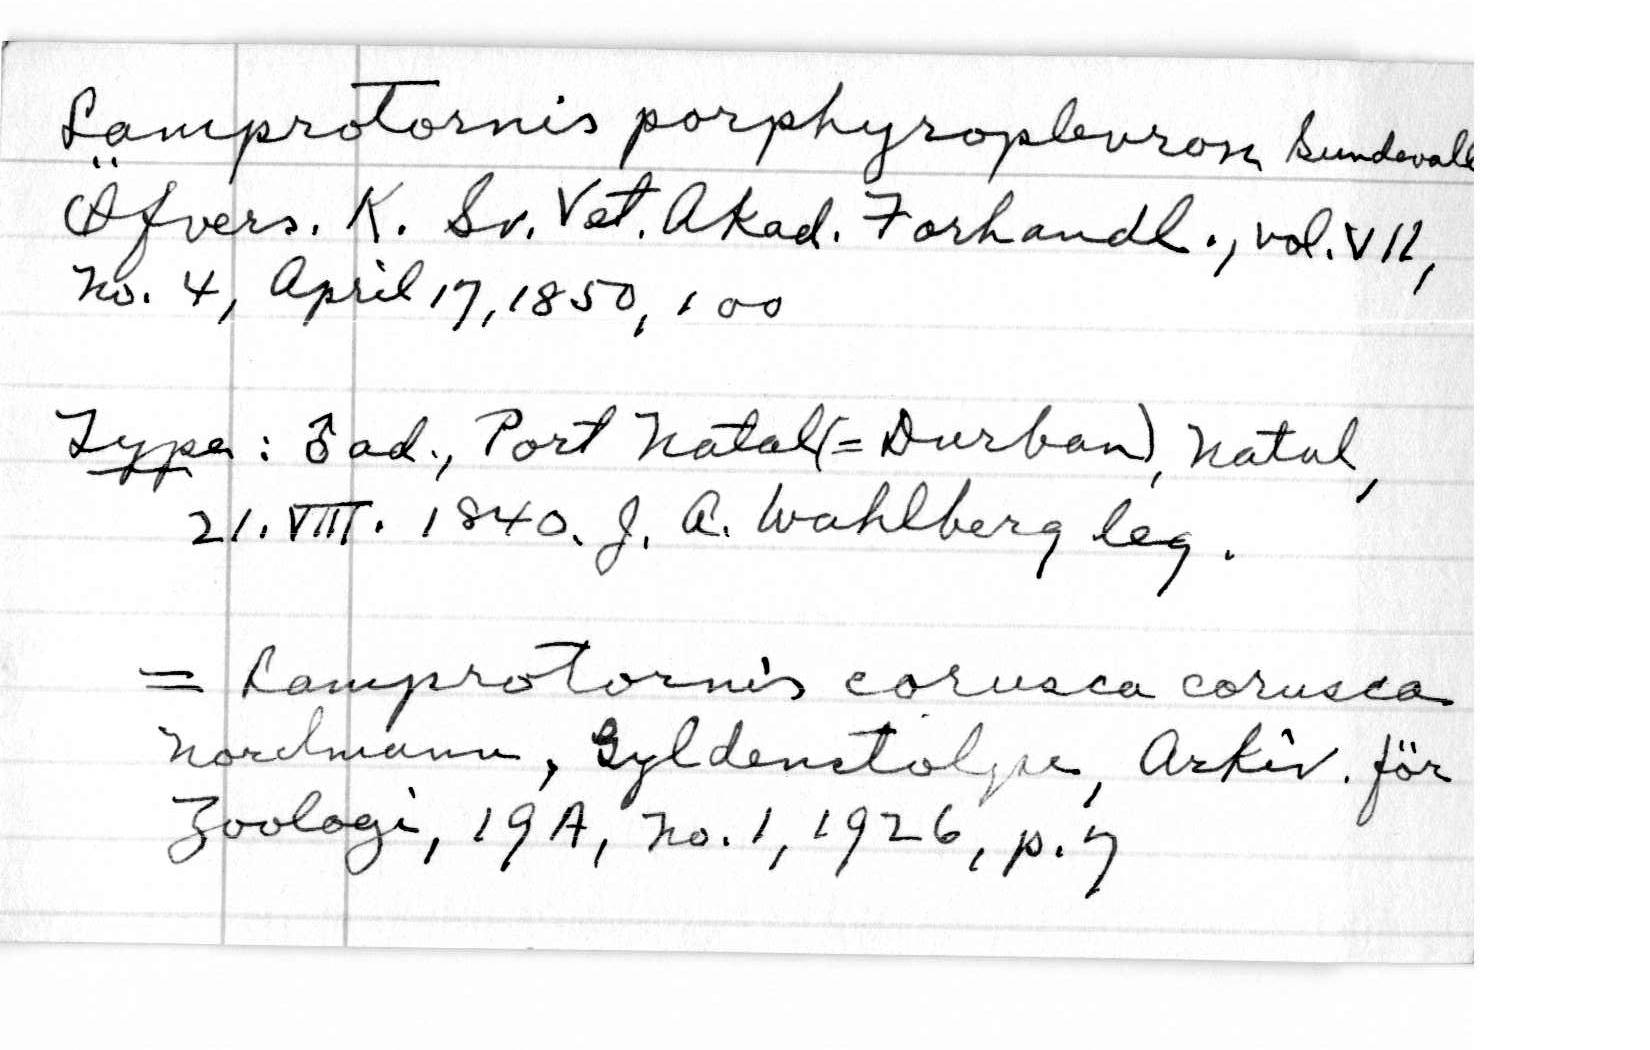 Lamprotornis porphyroplevron Sundevall
Öfvers. K. Sv. Vet. Akad. Forhandl., vol. VII,
no. 4, April 17, 1850, 100
Type: ♂ ad., Port Natal (= Durban), Natal,
21. VIII. 1840. J. A. Wahlberg leg.
= Lamprotornis corusca corusca
Nordmann, Gyldenstolpe, Arkiv. för
Zoologi, 19A, no. 1, 1926, p. 7